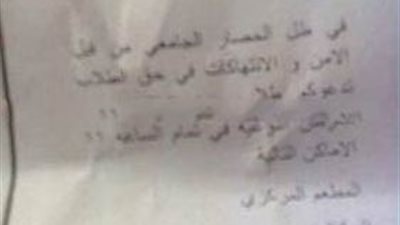 في ظل الحصار الجامعي من قبل
الامن و الانتهاكات في حق الطلاب
ندعوكم
في تمام الساعه
الاماكن التالية
المطعم المركزي